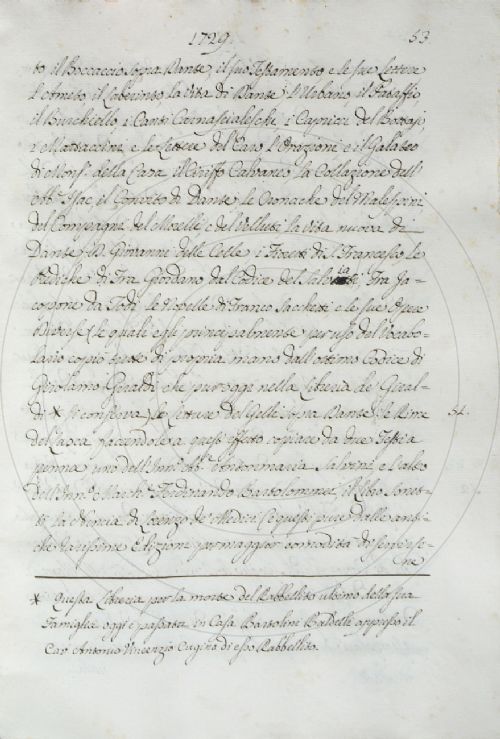 1729. 53
to, il Boccaccio sopra Dante, il suo Testamento e le sue Lettere
l'Ameto, il Laberinto, la Vita di Dante, l'Urbano, il Pataffio,
il Burchiello, i Canti Carnascialeschi, i Capricci del Bottaio,
i Mattaccini, e le Lettere del Caro, l'Orazioni, e il Galateo
di Mons.r della Casa, il Ciriffo Calvaneo, la Collazione dell'
Ab. Isac, il Convito di Dante, le Cronache del Malespini
del Compagni, del Morelli, e del Velluti, la Vita nuova di
Dante, D. Giovanni delle Celle, i Fioretti di S. Francesco, le
Prediche di Fra Giordano dal Codice del Fra Ja-
copone da Todi, le Novelle di Franco Sacchetti, e le sue Opere
Diverse (le quali egli principalmente per uso del Vocabo-
lario copiò tutte di propria mano dall'ottimo Codice di
Girolamo Giraldi, che pur oggi nella Libreria de' Giral-
di * si conserva) le Letture del Gelli sopra Dante, e le Rime 54.
del Lasca facendo a quest'effetto copiare da due Testi a
penna uno dell'Inn.o Ab. Antonmaria Salvini, e l'altro
dell'Inn.o March. Ferdinando Bartolommei, il Libro Sonet-
ti, la Nencia di Lorenzo de' Medici (e questi pure dalle anti-
che rarissime Edizioni) per maggior comodità di
ne
* Questa Libreria per la morte del Rabbellito ultimo della sua
Famiglia oggi è passata in Casa Bartolini Baldelli appresso il
Cav. Antonio Vincenzio Cugino di esso Rabbellito.